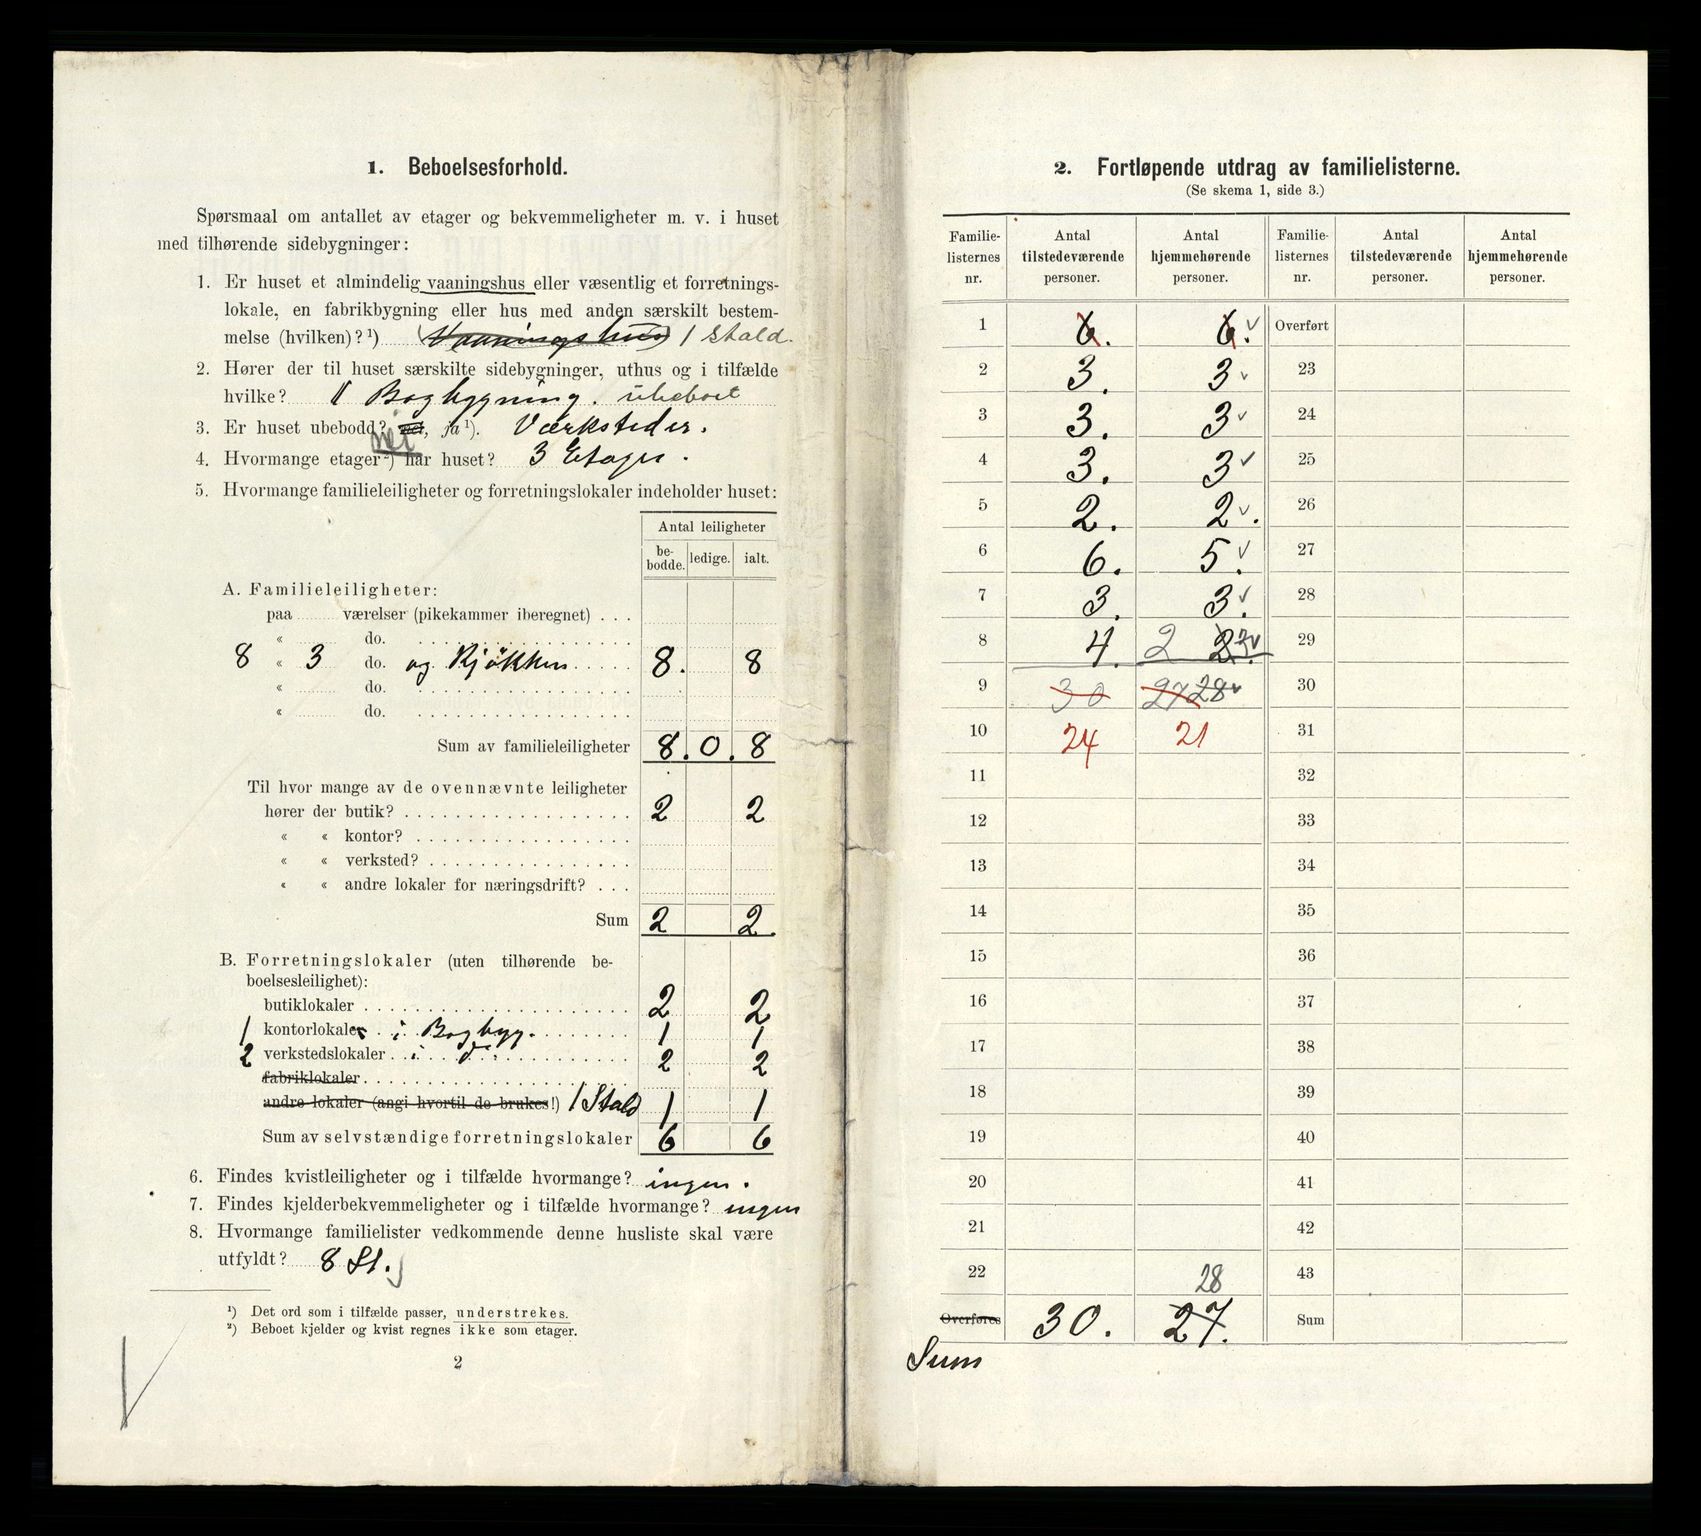 1. Beboelsesforhold.
Spørsmaal om antallet av etager og bekvemmeligheter m. v. i huset
med tilhørende sidebygninger:
1. Er huset et almindelig vaaningshus eller væsentlig et forretnings-
lokale, en fabrikbygning eller hus med anden særskilt bestem-
melse (hvilken)? ¹) (Vaaningshus) 1 Stald.
2. Hører der til huset særskilte sidebygninger, uthus og i tilfælde
hvilke? 1 Bagbygning. ubeboet
3. Er huset ubebodd? nei, ja ¹). Værksteder.
nei
4. Hvormange etager ²) har huset? 3 Etager.
5. Hvormange familieleiligheter og forretningslokaler indeholder huset:
Antal leiligheter
be-bodde. ledige. ialt.
A. Familieleiligheter:
paa værelser (pikekammer iberegnet) . . .
« do.
8 « 3 do. og Kjøkken 8. 8
« do.
« do.
Sum av familieleiligheter 8. 0. 8
Til hvor mange av de ovennævnte leiligheter
hører der butik? 2 2
« « kontor?
« « verksted?
« « andre lokaler for næringsdrift? . . .
Sum 2 2.
B. Forretningslokaler (uten tilhørende be-
boelsesleilighet):
butiklokaler 2 2
1 kontorlokaler i Bagbyg. 1 1
2 verkstedslokaler i do 2 2
fabriklokaler
andre lokaler (angi hvortil de brukes!) 1 Stald 1 1
Sum av selvstændige forretningslokaler 6 6
6. Findes kvistleiligheter og i tilfælde hvormange? ingen.
7. Findes kjelderbekvemmeligheter og i tilfælde hvormange? ingen
8. Hvormange familielister vedkommende denne husliste skal være
utfyldt? 8 St.
¹) Det ord som i tilfælde passer, understrekes.
²) Beboet kjelder og kvist regnes ikke som etager.
2
2. Fortløpende utdrag av familielisterne.
(Se skema 1, side 3.)
Familie-listernes nr. Antal tilstedeværende personer. Antal hjemmehørende personer. Familie-listernes nr. Antal tilstedeværende personer. Antal hjemmehørende personer.
1 6. 6. Overført
2 3. 3 23
3 3. 3 24
4 3. 3 25
5 2. 2. 26
6 6. 5. 27
7 3. 3. 28
8 4. 2 29
9 30 27 28 30
10 24 21 31
11 32
12 33
13 34
14 35
15 36
16 37
17 38
18 39
19 40
20 41
21 42
22 28 43
Overføres 30. 27. Sum
Sum